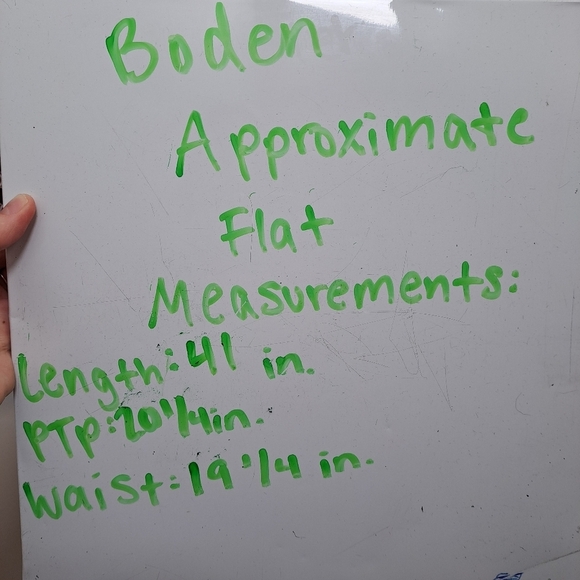 Boden
Approximate
Flat
Measurements:
Length: 41 in.
PTP: 20 1/4 in.
Waist: 19 1/4 in.